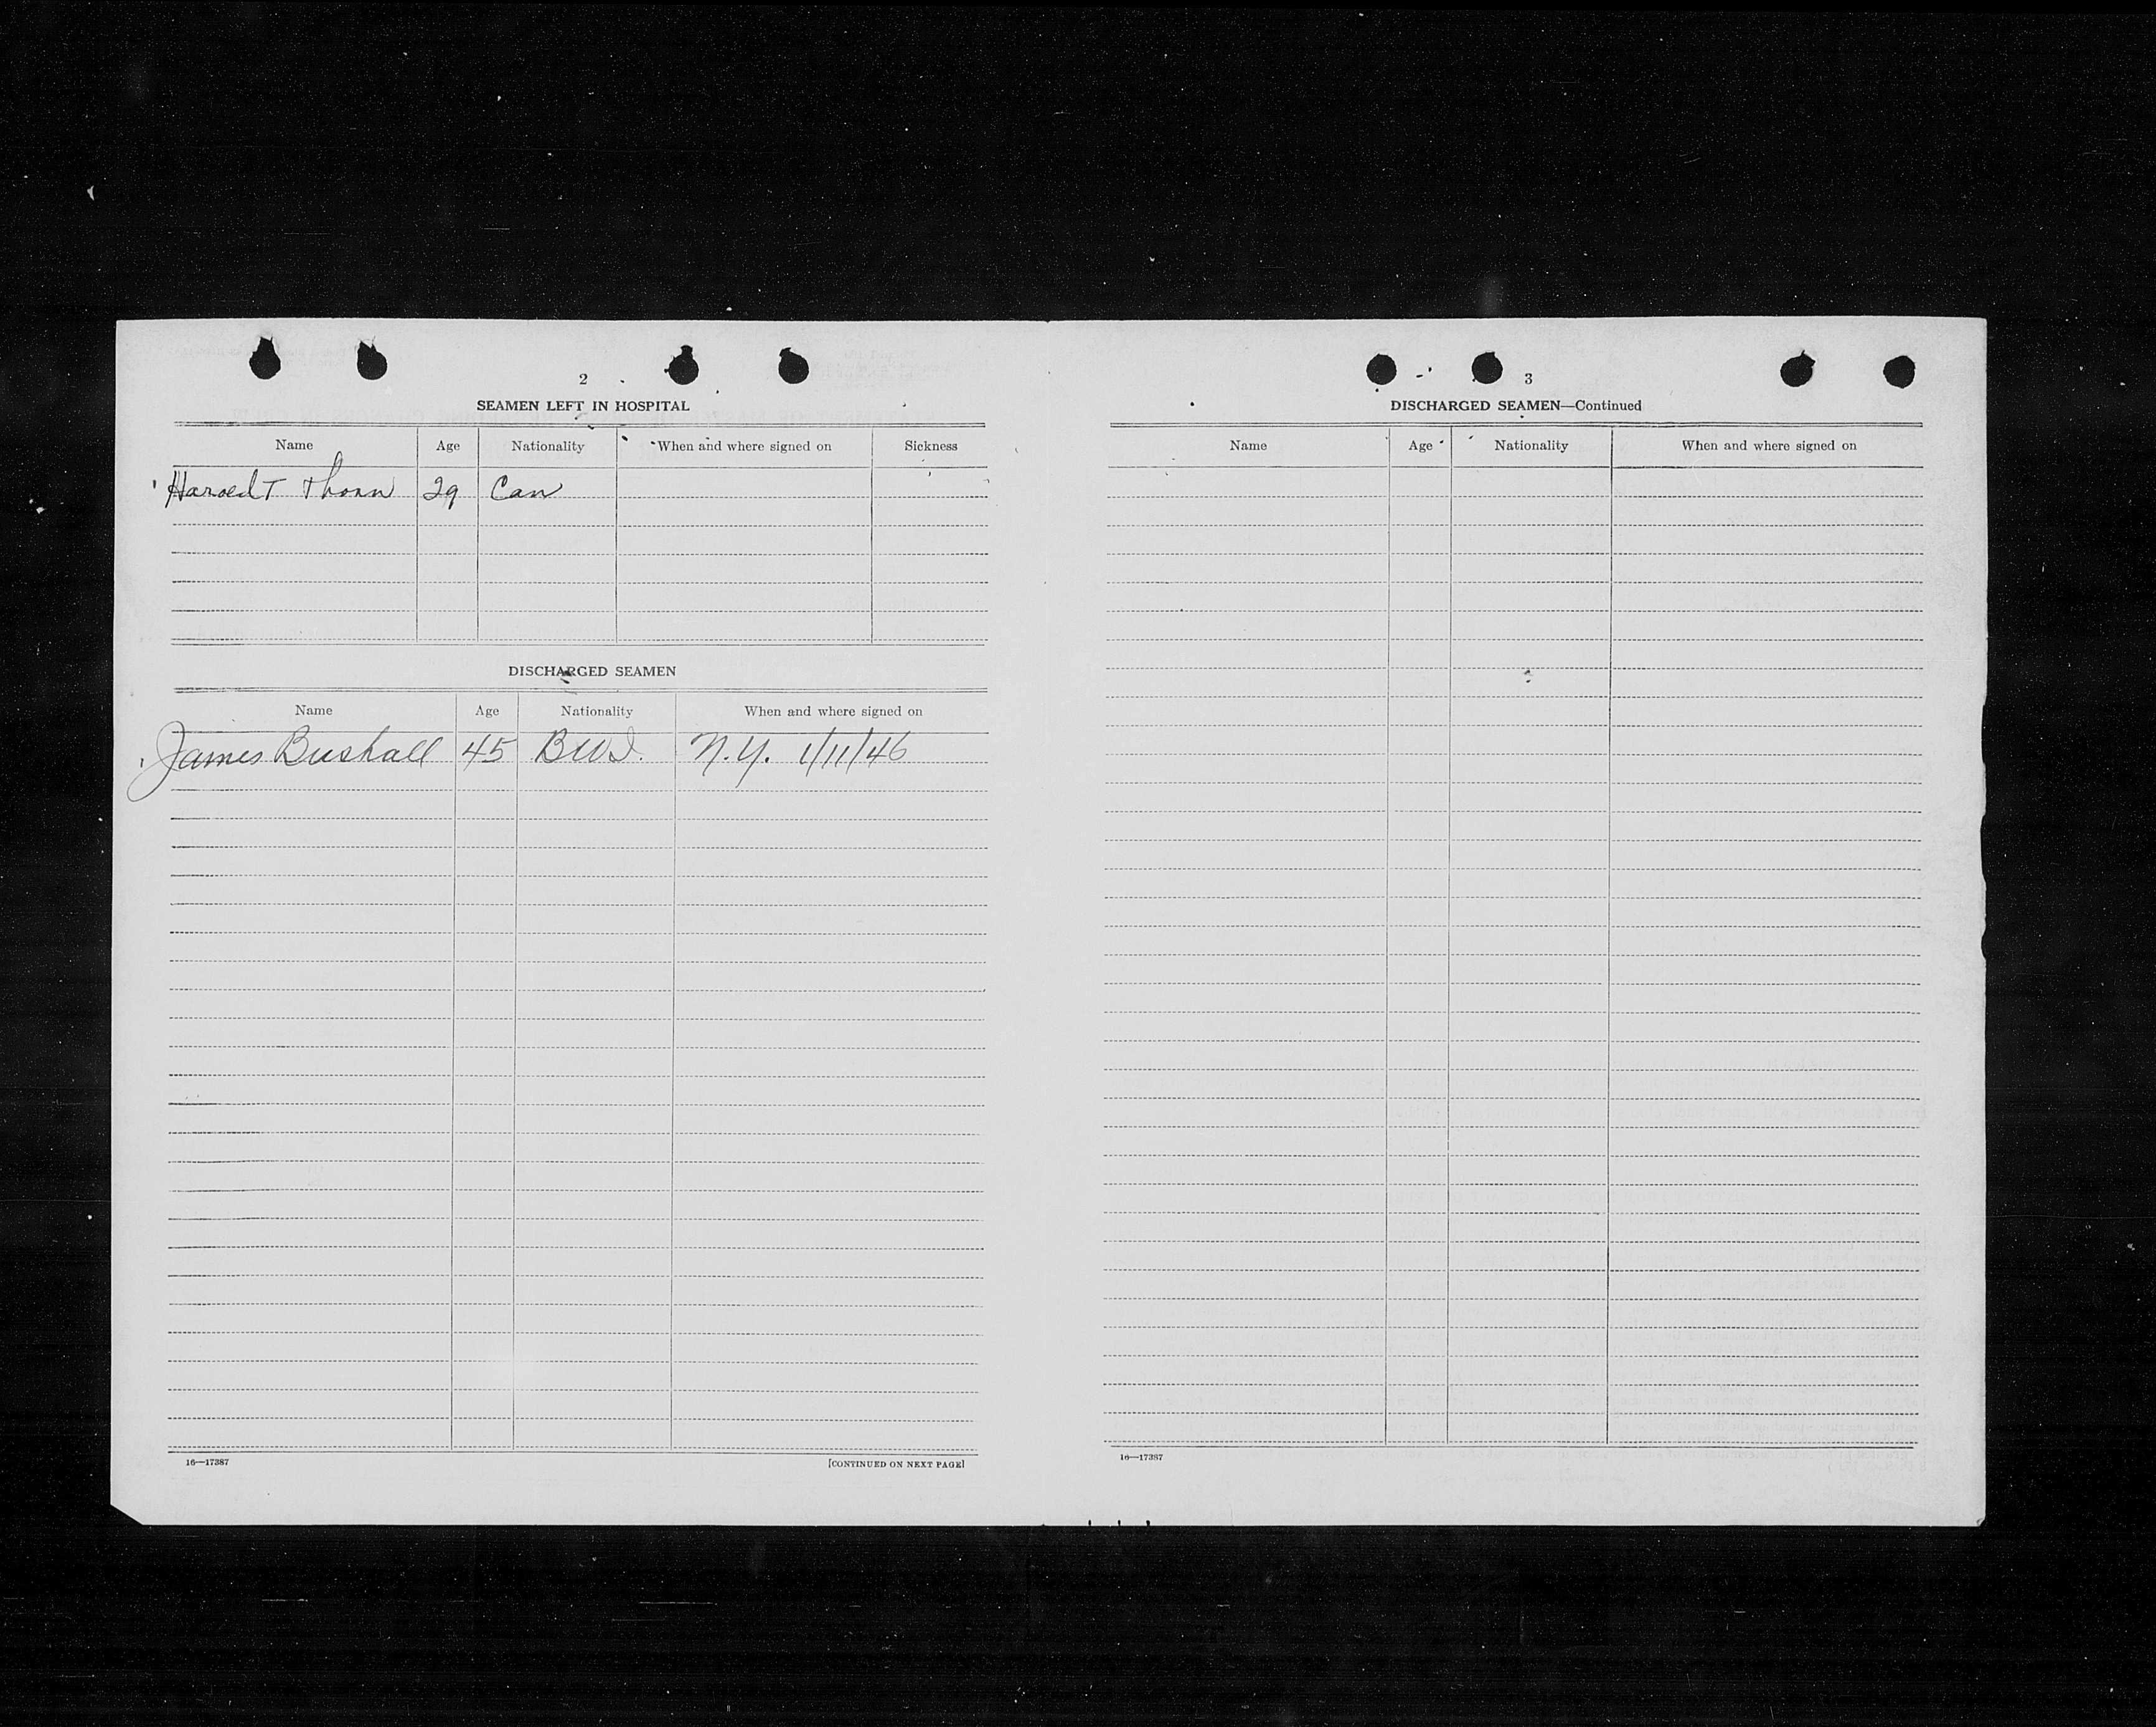 2
SEAMEN LEFT IN HOSPITAL
Name Age Nationality When and where signed on Sickness
Harold T Thorn 29 Can
DISCHARGED SEAMEN
Name Age Nationality When and where signed on
James Bushall 45 BWI. N.Y. 1/11/46
16—17387 [CONTINUED ON NEXT PAGE]
3
DISCHARGED SEAMEN—Continued
Name Age Nationality When and where signed on
16—17387